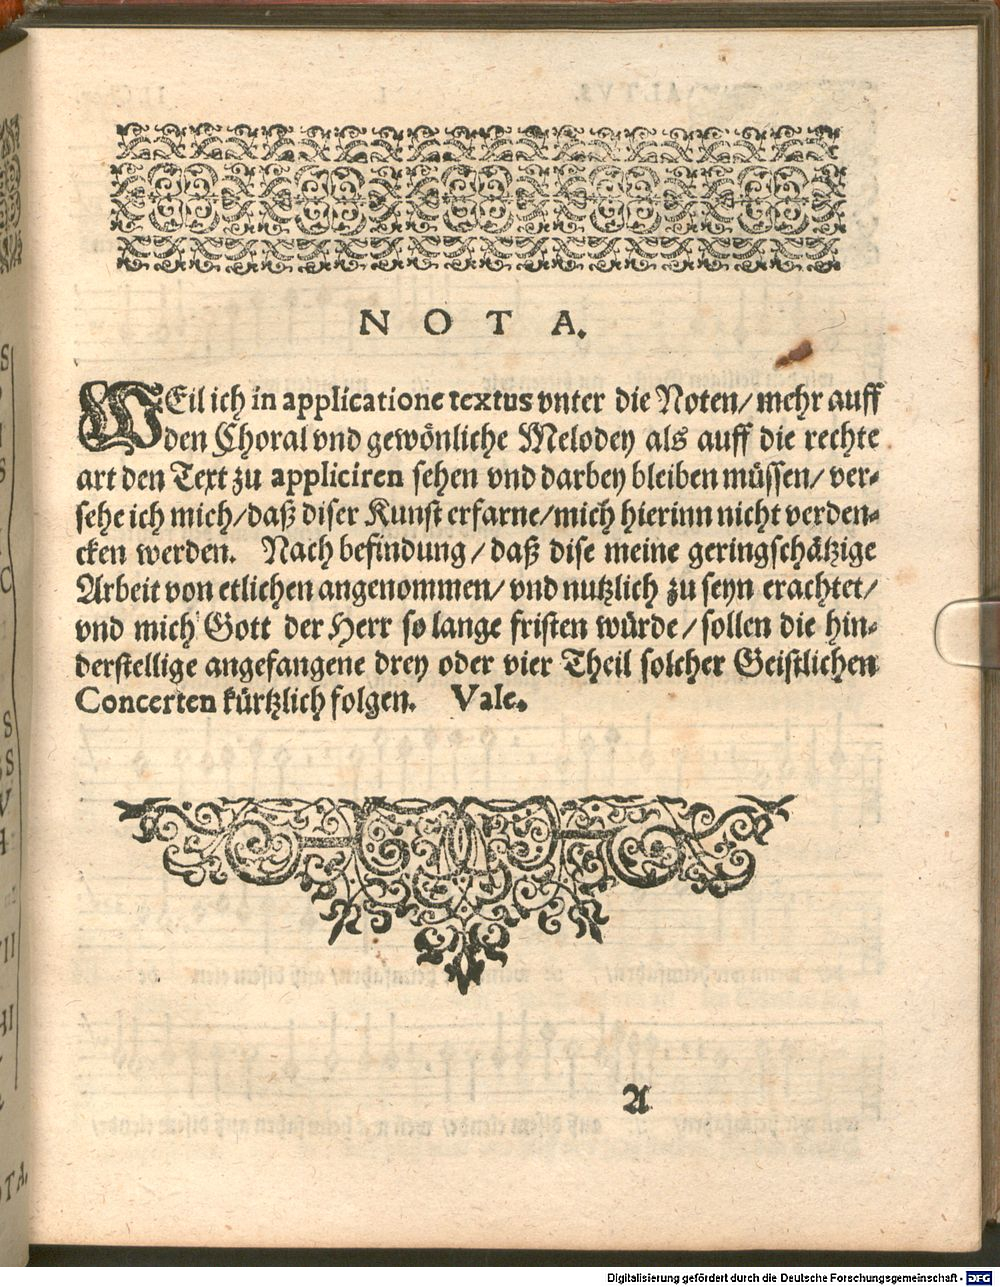 N O T A.
WEil ich in applicatione textus vnter die Noten/ mehr auff
den Choral vnd gewönliche Melodey als auff die rechte
art den Text zu appliciren sehen vnd darbey bleiben müssen/ ver-
sehe ich mich/daß diser Kunst erfarne/mich hierinn nicht verden-
cken werden. Nach befindung/ daß dise meine geringschätzige
Arbeit von etlichen angenommen/ vnd nutzlich zu seyn erachtet/
vnd mich Gott der Herr so lange fristen würde/ sollen die hin-
derstellige angefangene drey oder vier Theil solcher Geistlichen
Concerten kürtzlich folgen. Vale.
A
Digitalisierung gefördert durch die Deutsche Forschungsgemeinschaft - DFG